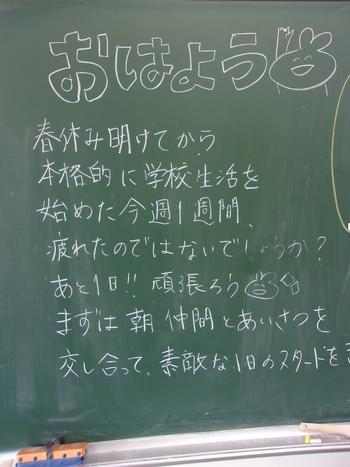 おはよう
春休み明けてから
本格的に学校生活を
始めた今週1週間、
疲れたのではないでしょうか？
あと1日!! 頑張ろう
まずは朝 仲間とあいさつを
交し合って、素敵な1日のスタートを